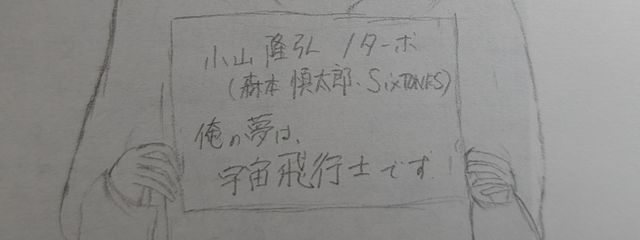 小山隆弘 / ターボ
(森本慎太郎、SixTONES)
俺の夢は、
宇宙飛行士です!